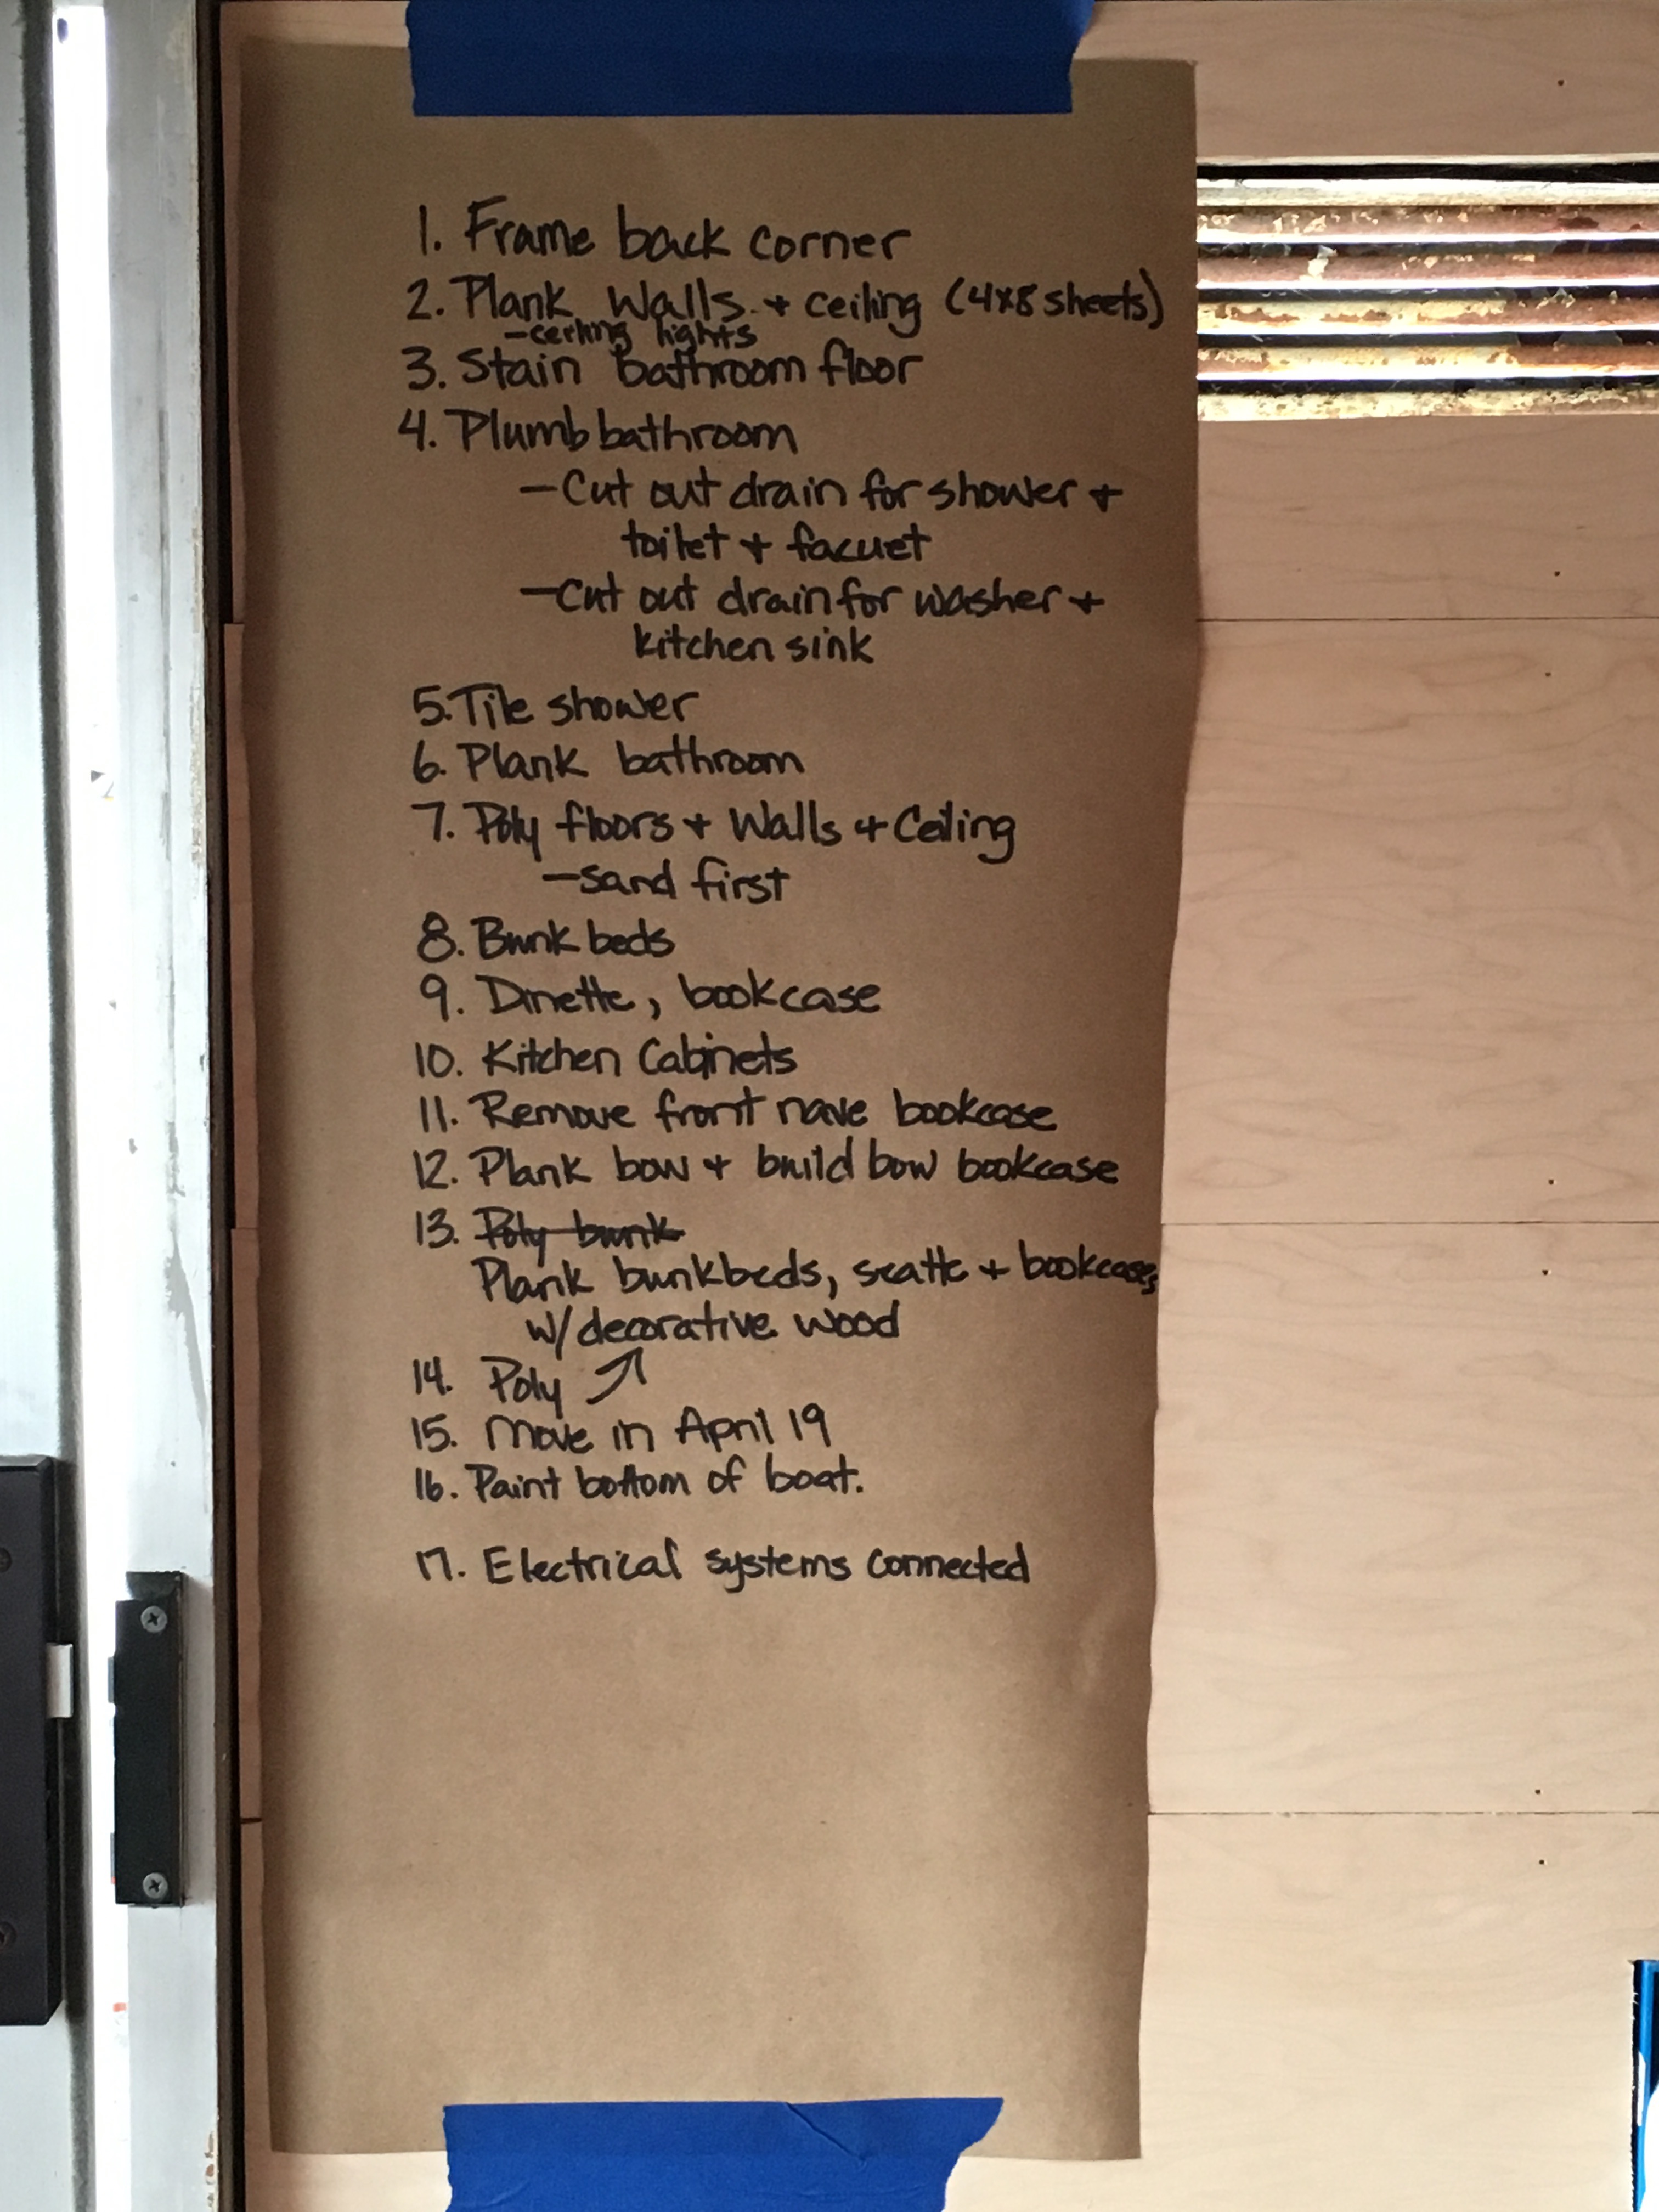 1. Frame back corner
2. Plank Walls + ceiling (4x8 sheets)
- ceiling lights
3. Stain bathroom floor
4. Plumb bathroom
- Cut out drain for shower +
toilet + facuet
- Cut out drain for washer +
kitchen sink
5. Tile shower
6. Plank bathroom
7. Poly floors + Walls + Ceiling
- sand first
8. Bunk beds
9. Dinette, bookcase
10. Kitchen Cabinets
11. Remove front nave bookcase
12. Plank bow + build bow bookcase
13. Poly bunk
Plank bunkbeds, seatte + bookcases
w/ decorative wood
14. Poly ↗
15. Move in April 19
16. Paint bottom of boat.
17. Electrical systems connected